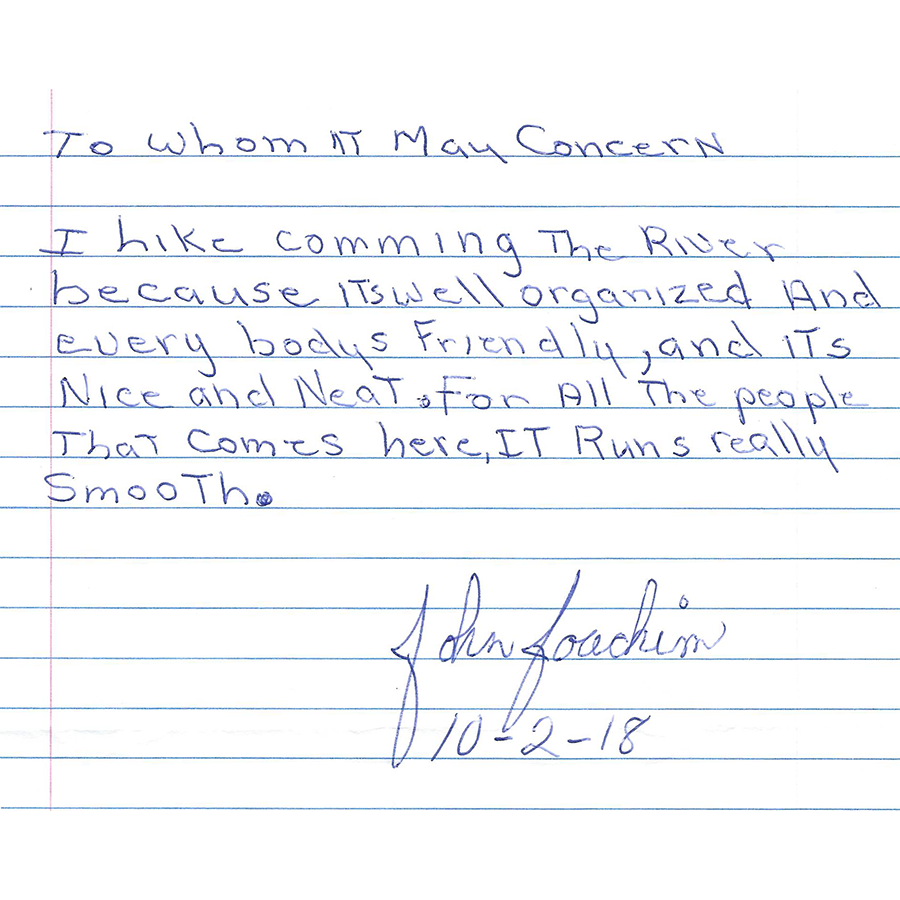 To Whom IT May Concern
I like comming The River
because ITs well organized And
every bodys Friendly, and iTs
Nice and NeaT. For All The people
ThaT Comes here, IT Runs really
SmooTh.
John Joachim
10-2-18